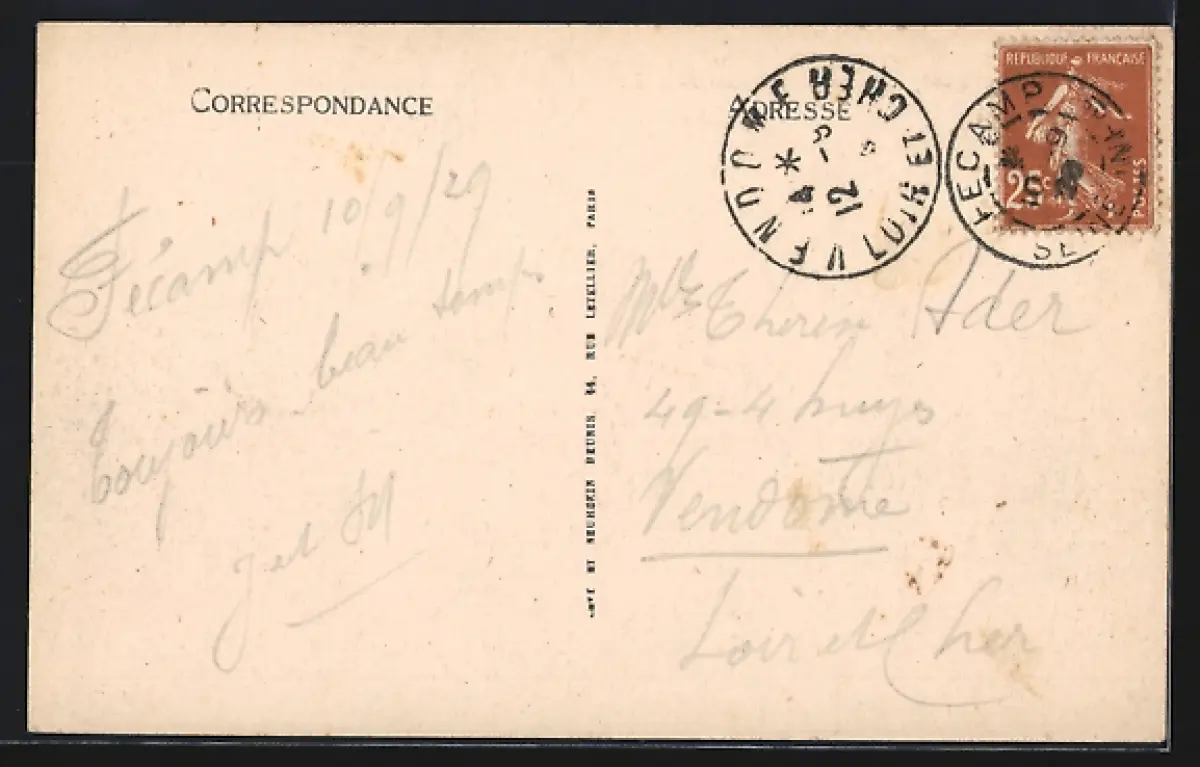 CORRESPONDANCE
Fécamp 10/9/29
toujours beau temps
J et M
LEVY ET NEURDEIN REUNIS, 44, RUE LETELLIER, PARIS
ADRESSE
VENDOME LOIR ET CHER
12 -9
FECAMP SEINE INF
REPUBLIQUE FRANÇAISE
25c
POSTES
Mlle Therese Ader
Vendome
Loir et Cher